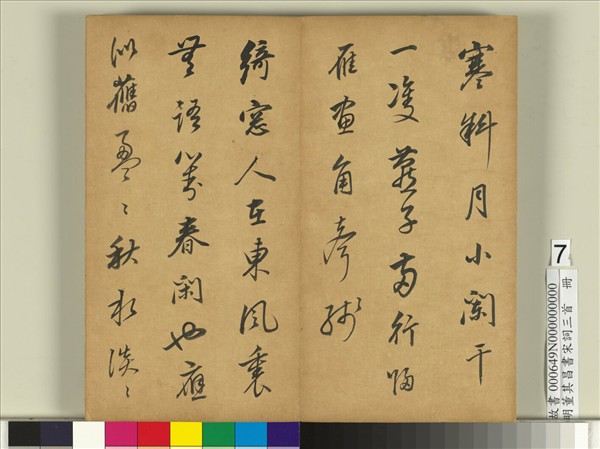 寒斜月小闌干
一雙燕子兩行歸
雁畫角聲殘
綺窓人在東風裏
無語對春閑也應
似舊盈〻秋水淡〻
7
故書000649N000000000
明董其昌書宋詞三首 冊